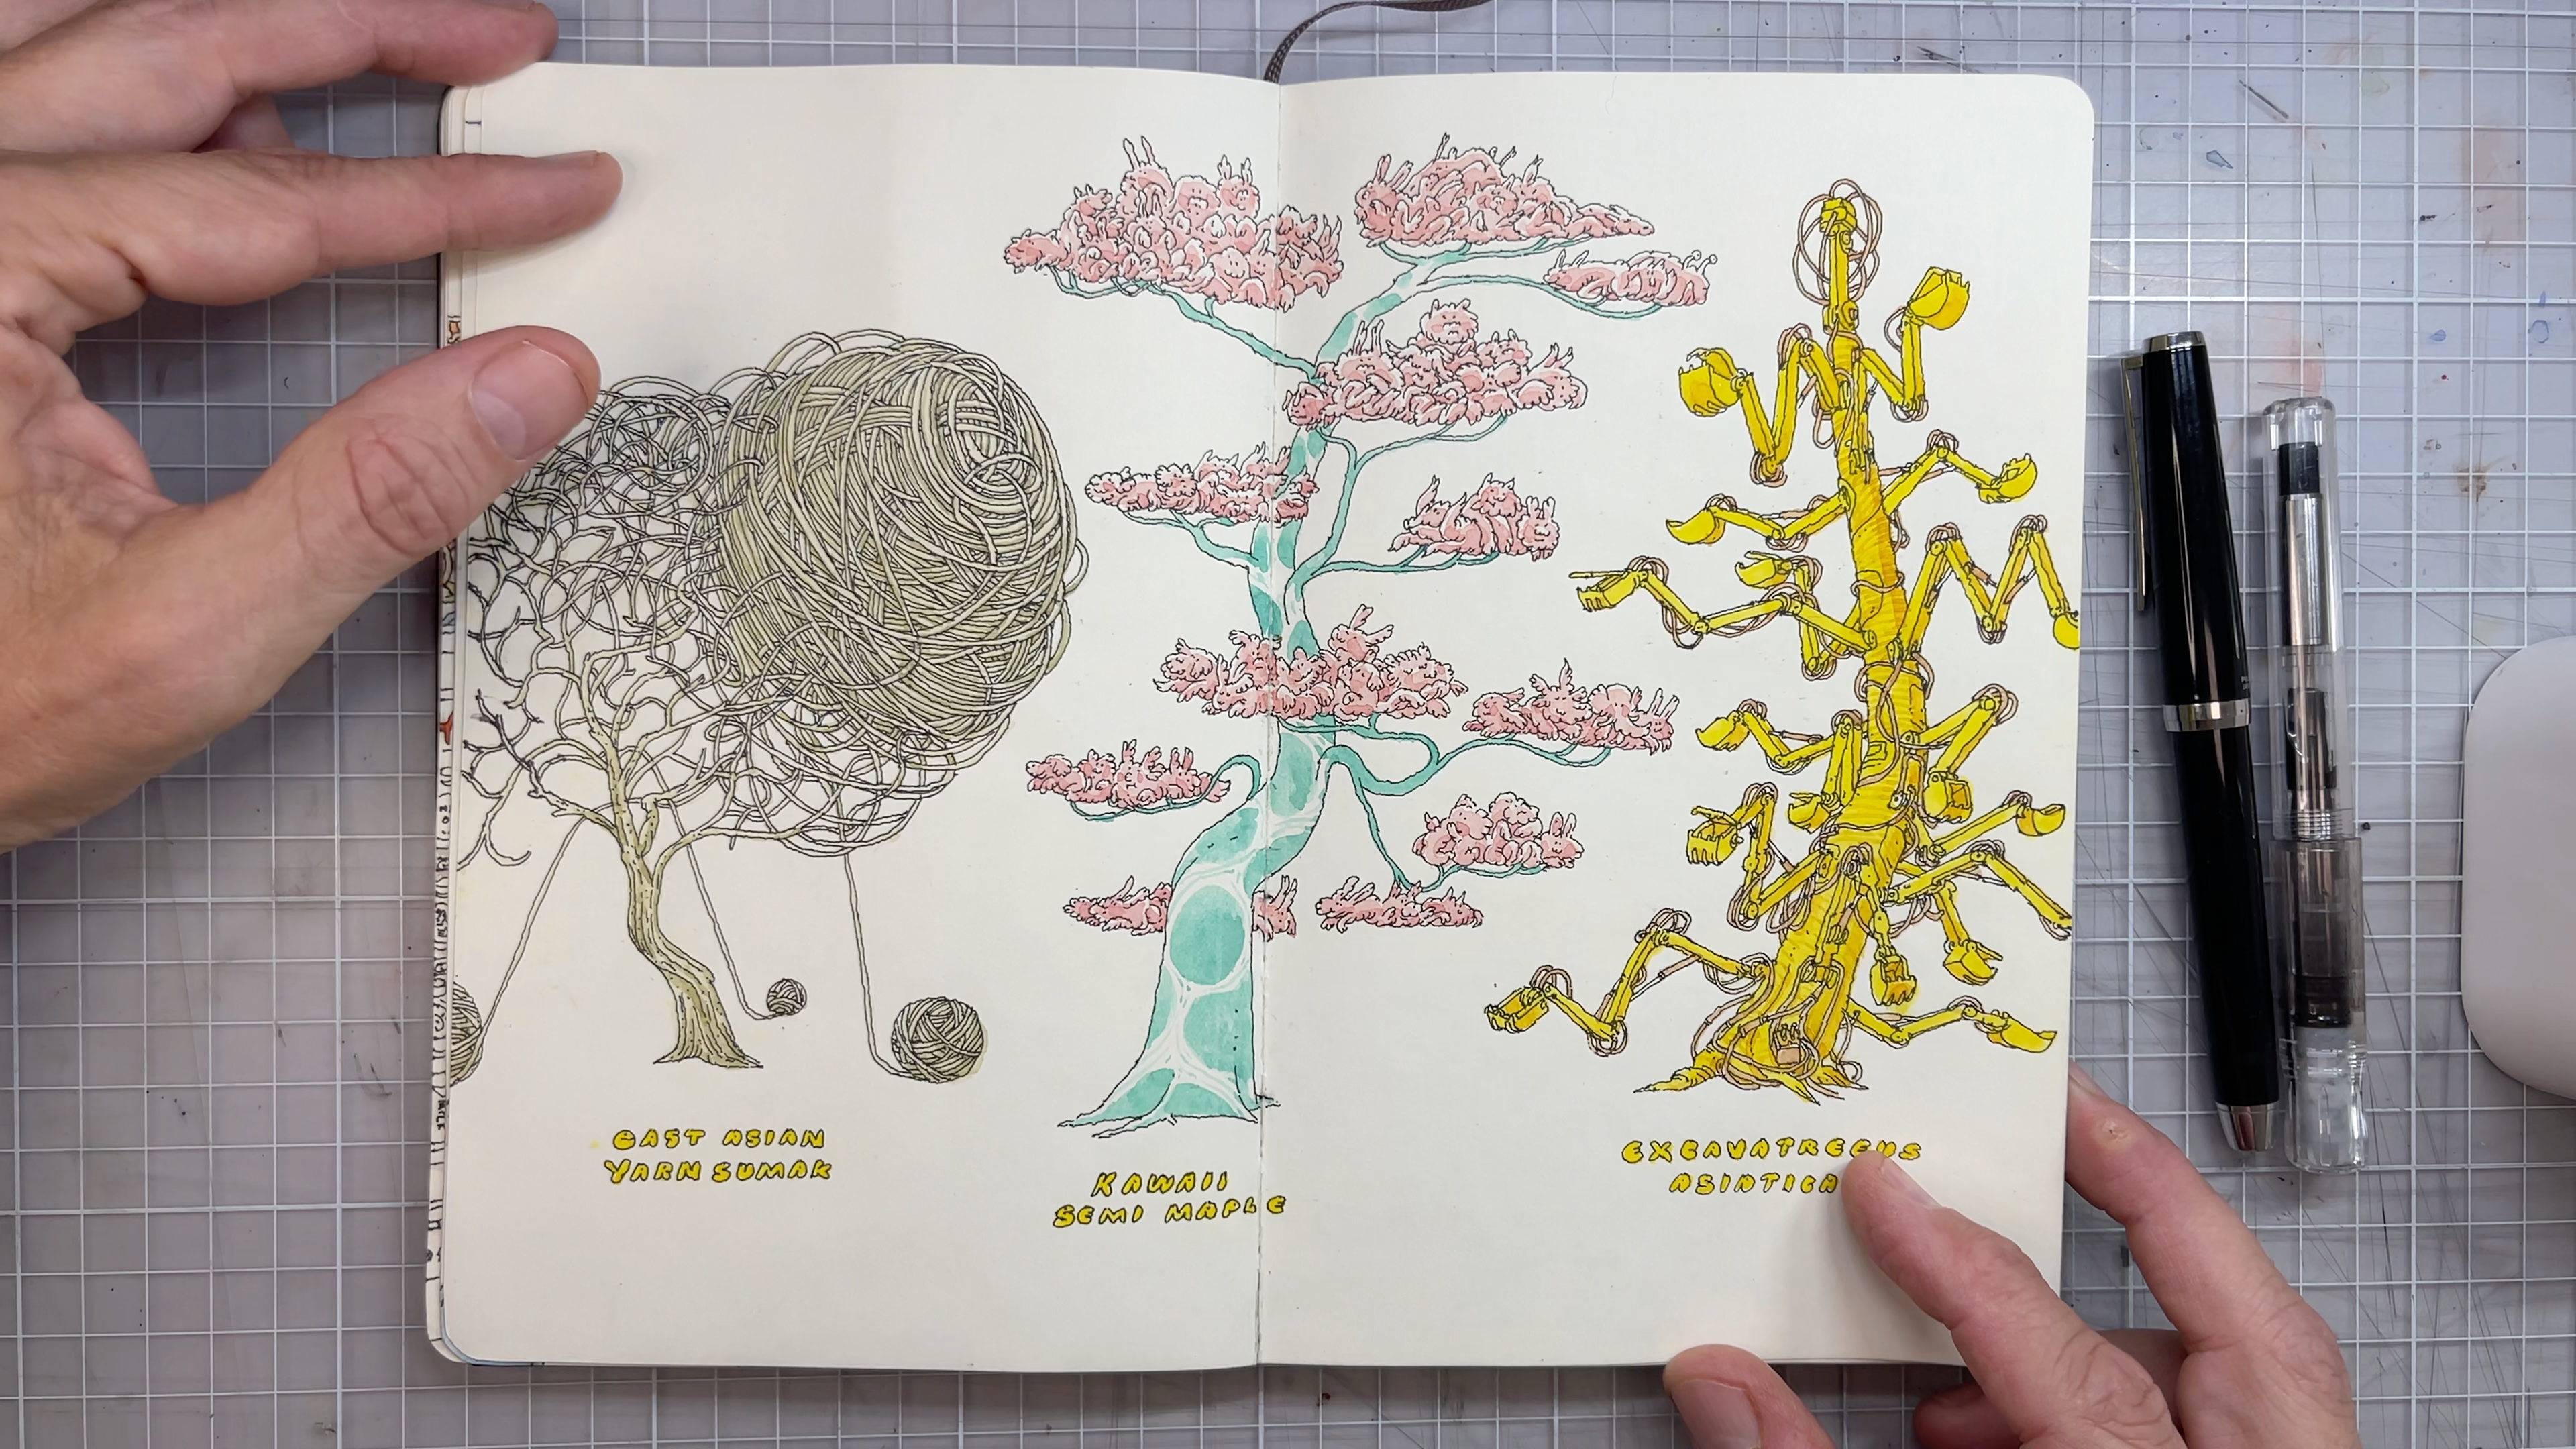 EAST ASIAN
YARN SUMAK
KAWAII
SEMI MAPLE
EXCAVATREEUS
ASIATICA